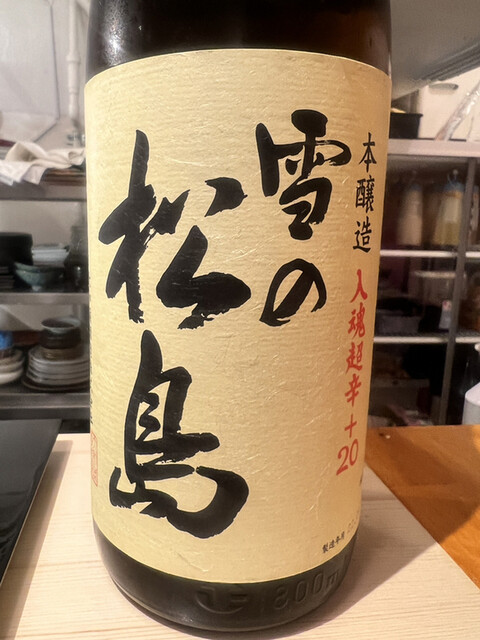 本醸造
入魂超辛+20
雪の
松島
製造年月
1.8
1800ml